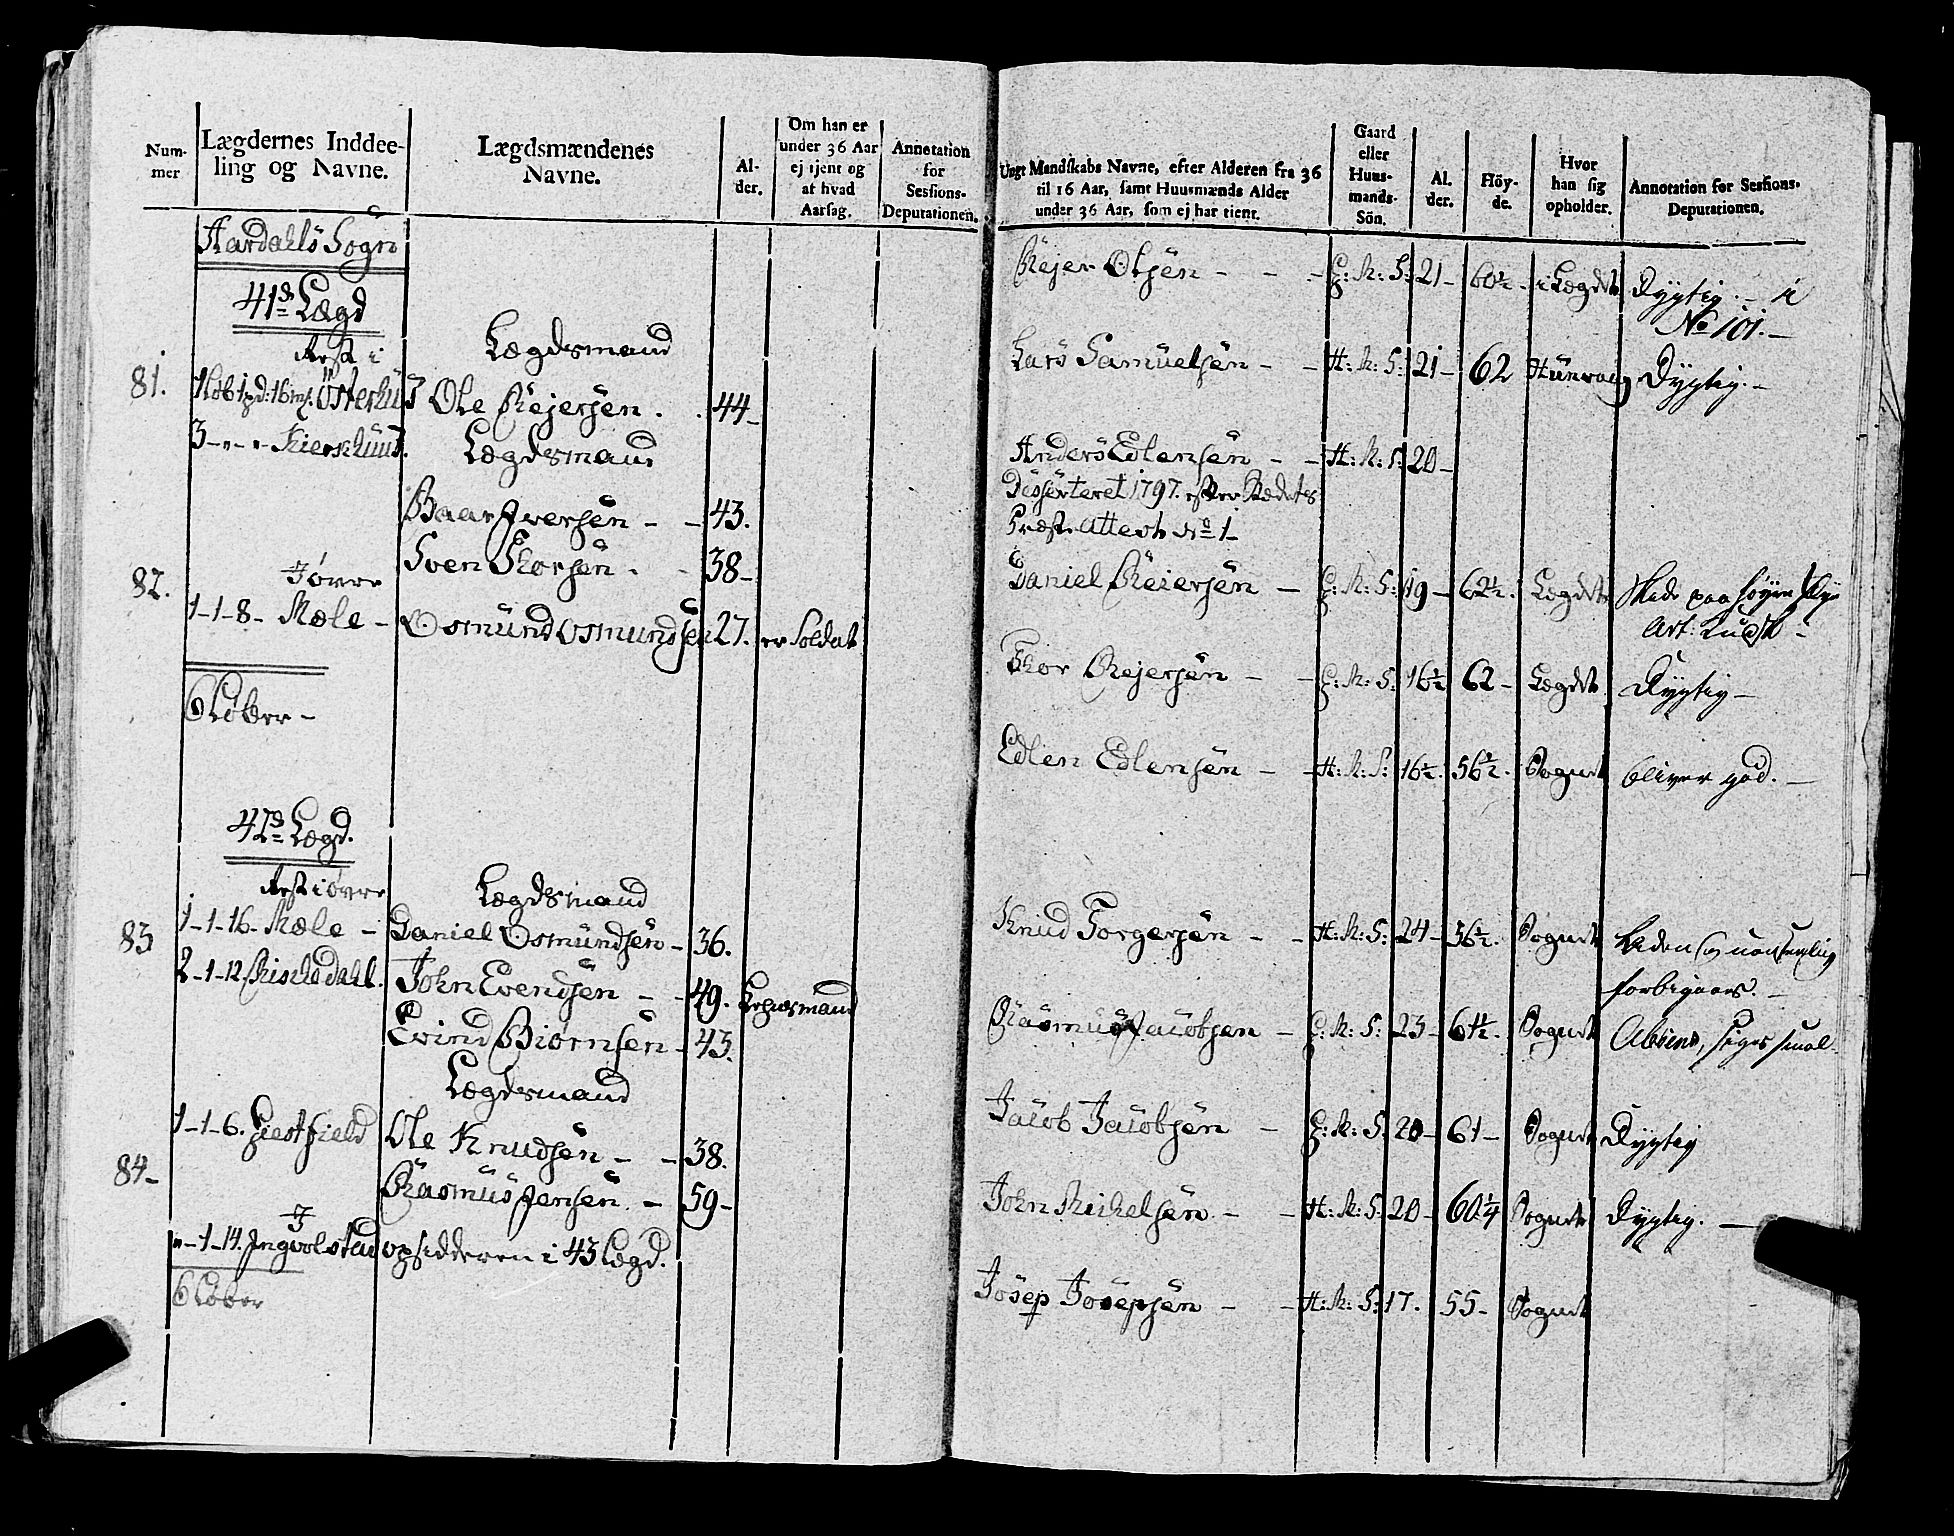 Num-
mer
Lægdernes Inddee-
ling og Navne.
Lægdsmændenes
Navne.
Al-
der.
Om han er
under 36 Aar
ej tjent og
at hvad
Aarsag.
Annotation
for
Sessions-
Deputationen.
Aardahls Sogn
41de Lægd
Rest i
Lægdsmand
81.
Österhuus
Ole Rejersen . . 44-
3-"-" Kierschuus.
Lægdsmand
Baar Iversen - - 43.
Sven Thorsen . - 38-
82.
I øvre
1-1-8- Mæle -
Osmund Osmundsen 27. er Soldat
6 Løber -
42de Lægd.
Rest i øvre
Lægdsmand
83
1-1-16- Mæle - Daniel Osmundsen - 36.
2-1-12. Riskedahl. John Evendsen - - 49. Lægdsmand
Evind Biørnsen - 43.
Lægdsmand
1-1-6. Giestfield Ole Knudsen - - 38.
84-
Rasmus Jensen - 59-
I
"-1-14. Ingvolstad opsidderen i 43 Lægd.
6 Løber
Ungt Mandskabs Navne, efter Alderen fra 36
til 16 Aar, samt Huusmænds Alder
under 36 Aar, som ej har tient.
Gaard
eller
Huus-
mands-
Sön.
Al.
der.
Höy-
de.
Hvor
han sig
opholder.
Annotation for Sessions-
Deputationen.
Rejer Olsen - - - G: M: S: 21- 60½- i Lægdet Dygtig. -
No 101. -
Lars Samuelsen - - H: M: S: 21- 62 Dygtig. -
Anders Edlensen - - H: M: S: 20-
Dessérteret 1797. efter Stedets
Præste Attest No 1-
Daniel Reiersen - G: M: S: 19- 62½. Lægdet
Thor Rejersen - - G: M: S: 16½ 62- Lægdet Dygtig -
Edlen Edlensen - - H: M: S: 16½. 56½. Sognet bliver god. -
Knud Torgersen - - H: M: S: 24- 56½. Sognet Liden og
forbigaaes. -
Rasmus Jacobsen - G: M: S: 23- 61½. Sognet Absent, siges
Jacob Jacobsen - G: M: S. 20- 61- Sognet Dygtig
John Mickelsen. - - H: M: S: 20- 60¼ Sognet Dygtig. -
Josep Josepsen - - H: M: S: 17. 55- Sognet